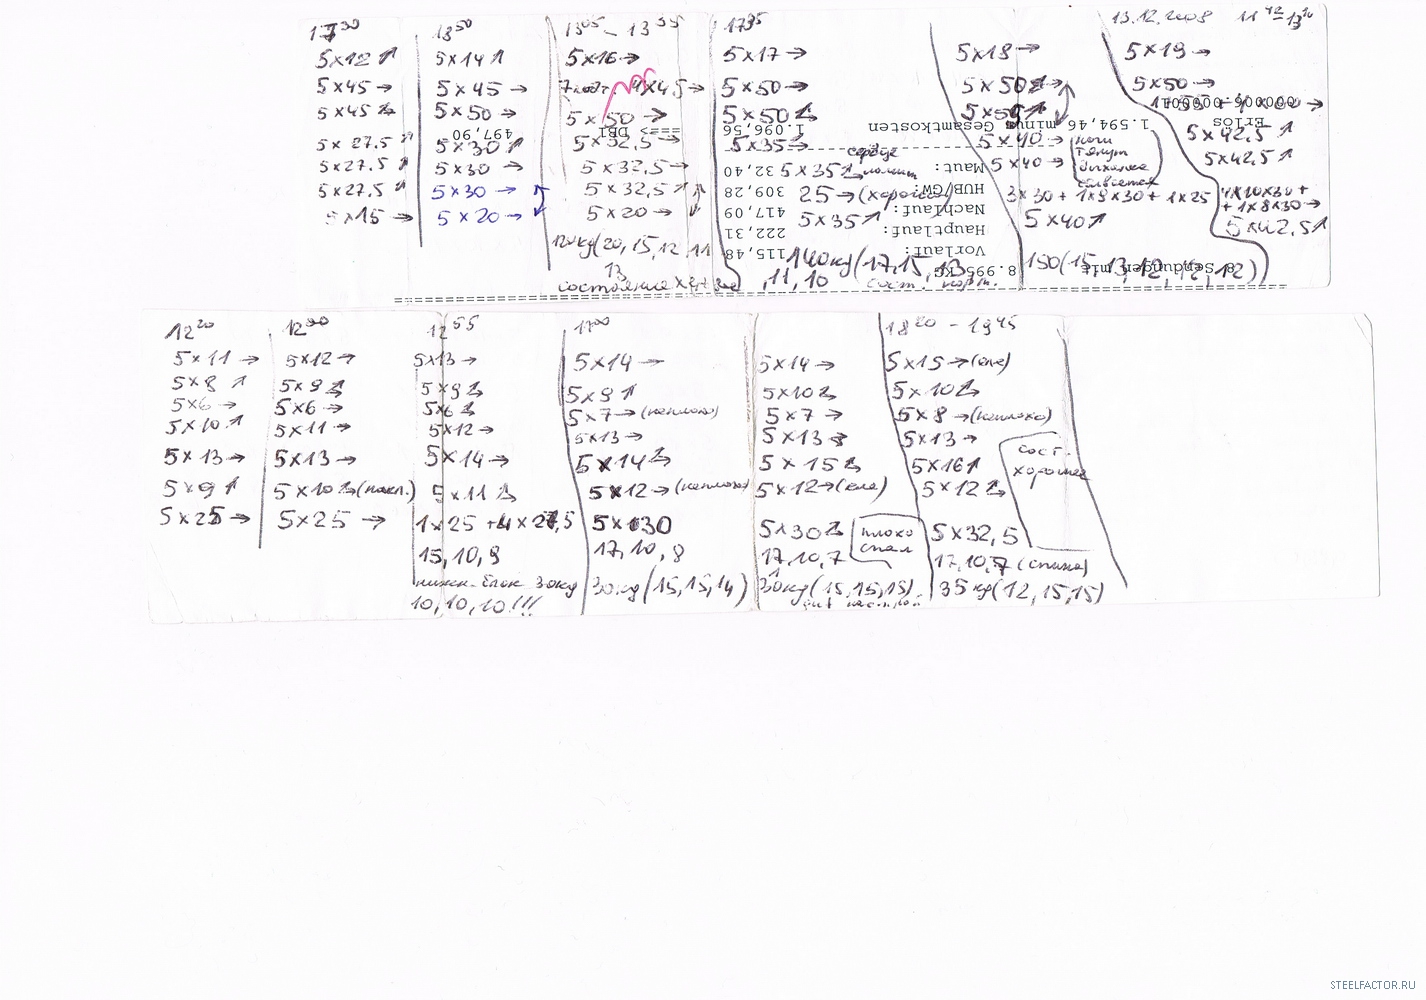 5 x 12 ↑
5 x 45 →
5 x 45
5 x 27.5 ↑
5 x 27.5 ↑
5 x 27.5 ↑
5 x 15 →
13 50
5 x 14 ↑
5 x 45 →
5 x 50 →
497,90
5 x 30 ↑
5 x 30 →
5 x 30 →
5 x 20 →
13 05 – 13 55
5 x 16 →
4x4,5 →
5 x 50 →
===> DBI
5 x 32,5 →
5 x 32,5 →
5 x 32,5 ↑
5 x 20 →
120кg (20, 15, 12, 11
13
состояние
17 35
5 x 17 →
5 x 50 →
5 x 50
1.096,56
5 x 35 →
сердце
5 x 35
32,40
Maut:
25 → (хорошо)
309,28
HUB/GW:
417,09
Nachlauf:
5 x 35 ↑
222,31
Hauptlauf:
115,48
Vorlauf:
140кg (17, 15, 13
, 11, 10
8.995 KG
5 x 18 →
5 x 50
5 x 50
1.594,46 minus Gesamtkosten
5 x 40 →
5 x 40 →
ноги
тянут
3 x 30 + 1 x 9 x 30 + 1 x 25
5 x 40 ↑
150 (15, 13, 12, 12, 12)
Sendungen mit
13.12.2008 11 42 – 13 10
5 x 19 →
5 x 50 →
Erlös
5 x 42,5 ↑
5 x 42,5 ↑
4 x 10 x 30 +
+ 1 x 8 x 30 →
5 x 42,5 ↑
12 20
5 x 11 →
5 x 8 ↑
5 x 6 →
5 x 10 ↑
5 x 13 →
5 x 9 ↑
5 x 25 →
12 30
5 x 12 →
5 x 9
5 x 6 →
5 x 11 →
5 x 13 →
5 x 10 (накл.)
5 x 25 →
12 55
5 x 13 →
5 x 9
5 x 6
5 x 12 →
5 x 14 →
5 x 11
1 x 25 + 4 x 27,5
15, 10, 9
нижн. блок 30кg
10, 10, 10!!!
17 00
5 x 14 →
5 x 9 ↑
5 x 7 → (неплохо)
5 x 13 →
5 x 14
5 x 12 → (неплохо)
5 x 30
17, 10, 8
30кg (15, 15, 14)
5 x 14 →
5 x 10
5 x 7 →
5 x 13 →
5 x 15
5 x 12 → (еле)
5 x 30
плохо
спал
17, 10, 7
30кg (15, 15, 15)
18 20 – 19 45
5 x 15 → (еле)
5 x 10
5 x 8 → (неплохо)
5 x 13 →
5 x 16 ↑
5 x 12
сост.
хорошее
5 x 32,5
17, 10, 7 (спина)
35кg (12, 15, 15)
STEELFACTOR.RU